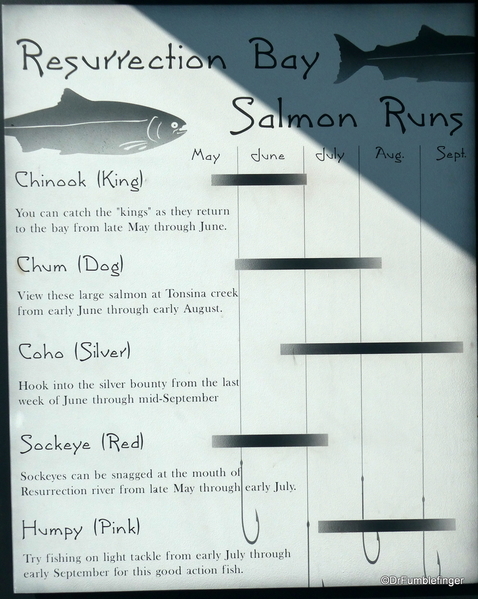 Resurrection Bay
Salmon Runs
May June July Aug. Sept.
Chinook (King)
You can catch the "kings" as they return
to the bay from late May through June.
Chum (Dog)
View these large salmon at Tonsina creek
from early June through early August.
Coho (Silver)
Hook into the silver bounty from the last
week of June through mid-September
Sockeye (Red)
Sockeyes can be snagged at the mouth of
Resurrection river from late May through early July.
Humpy (Pink)
Try fishing on light tackle from early July through
early September for this good action fish.
©DrFumblefinger